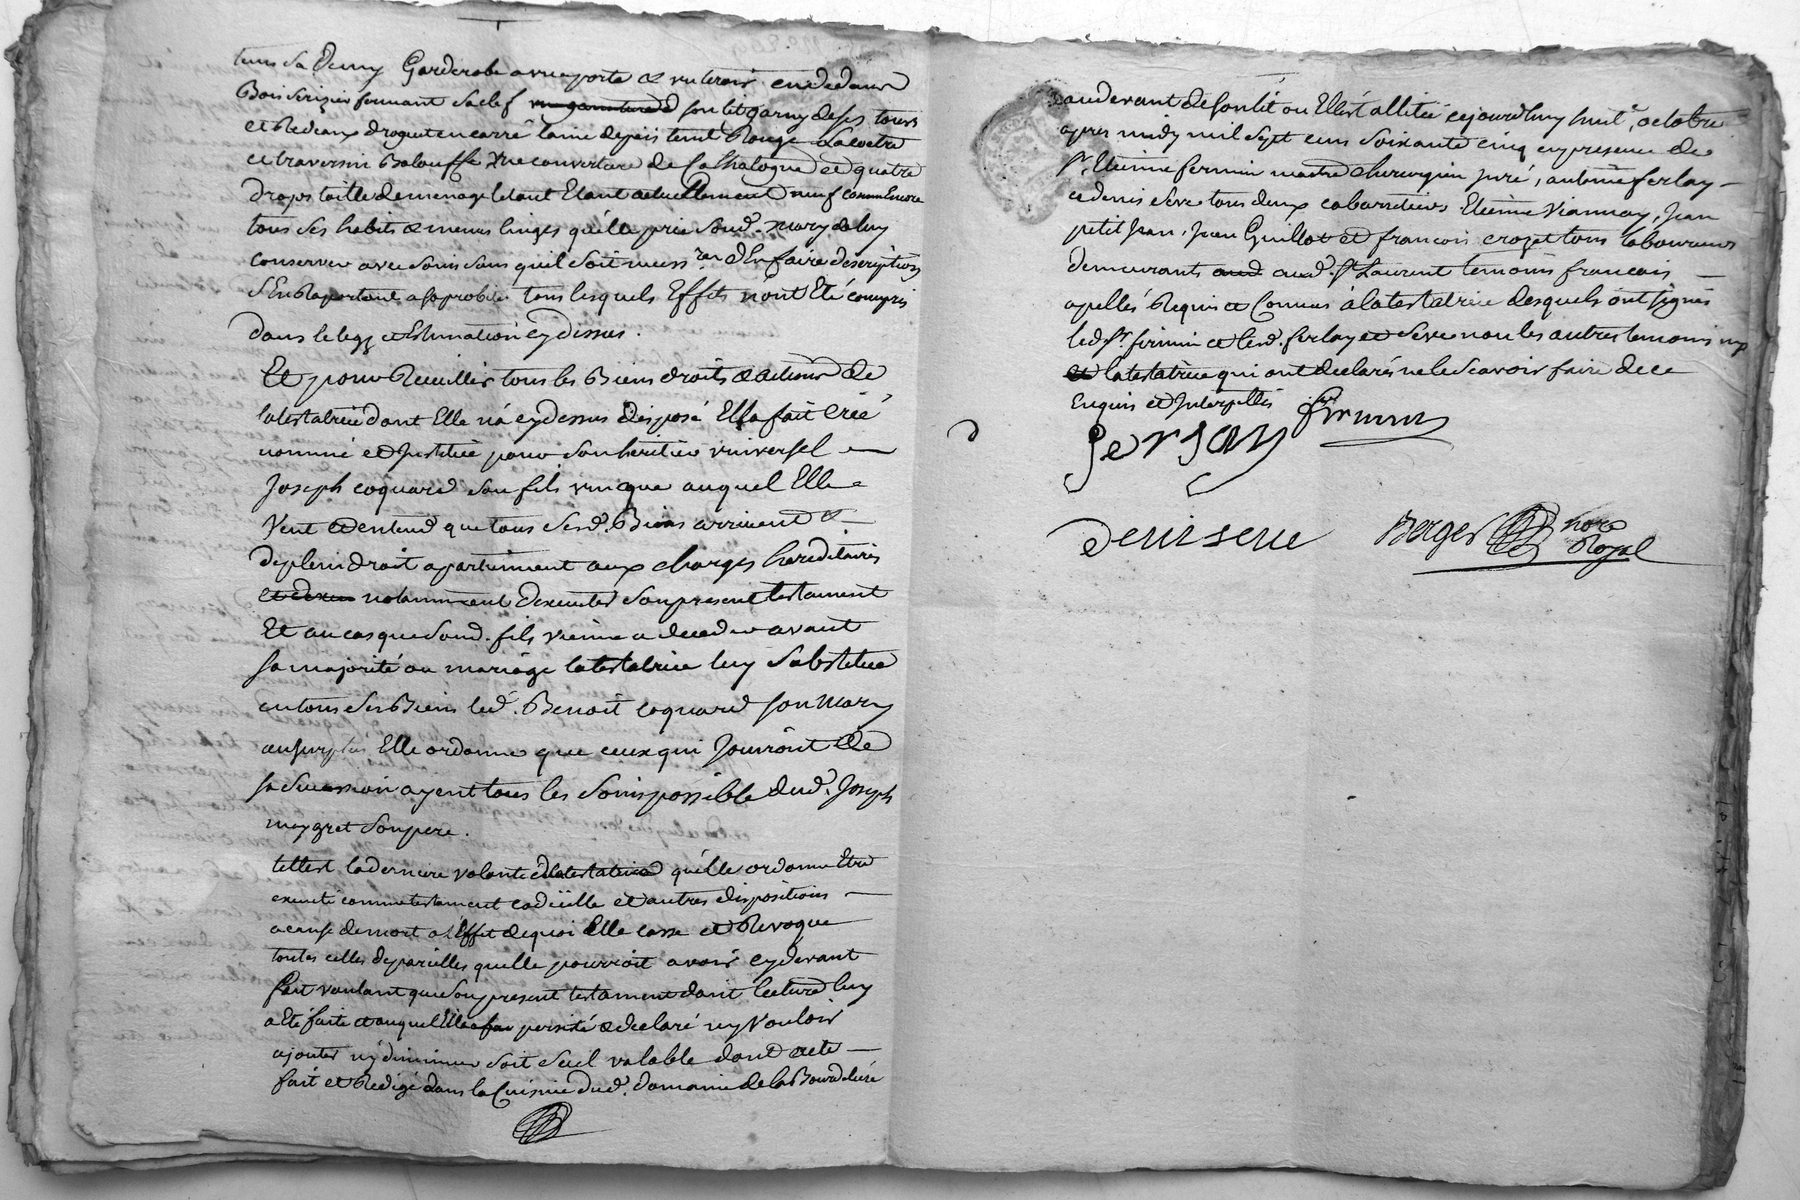 Garderobe a une porte & un tiroir en dedans
Bois Serizier fermant a clef son lit garny de ses tours
et Rideaux droguet en carré laine depeis teint Rouge La coetre
ce traversin Balouffe Une couverture de Cathalogne et quatre
draps toille de menage letout Etant actuellement neuf comm Encore
tous ses habits & menus linges qu'elle prie soud. mary de luy
conserver avec soins sans quil soit necess.re d'En faire description
S'En Raportant a sa probité tous lesquels Effets n'ont Eté compris
dans le legz et Estimation cydessus.
Et pour Recuillir tous les Biens droits & actions de
latestatrice dont Elle n'a cydessus disposé Ella fait créé
nommé et Institué pour son héritier universel
Joseph coquard son fils unicque auquel Elle
Veut et entend que tous sesd. Biens arrivent &
de plein droit apartiennent aux charges hereditaires
notamment d'executer son present testament
Et au cas que soud. fils vienne a deceder avant
sa majorité ou mariage latestatrice luy Substitue
en tous ses Biens led. Benoit coquard son mary
au surplus Elle ordonne que ceux qui Jouiront de
sa Sucession ayent tous les Soins possible dud. Joseph
maygret son pere.
telle est la derniere volonté de latestatrice qu'elle ordonne Etre
executé comme testament codicille et autres dispositions
a cause de mort a l'Effet de quoi Elle casse et Revoque
toutes celles depareilles quelle pourroit avoir cydevant
fait voulant que son present testament dont lecture luy
a Eté faite et auquel Elle a persisté & declaré ny vouloir
ajouter ny diminuer soit seul valable dont acte
fait et Redigé dans la Cuisine dud. domaine de la Bourdeliere
au devant de son lit ou Ell'est allitée cejourdhuy huit.e octobre
apres midy mil sept cens soixante cinq en presence de
Sr. Etienne fermin maitre chirurgien juré, antoine ferlay
et denis Seve tous deux cabarretiers Etienne Viannay, Jean
petit Jean, Jean Guillot et francois crozet tous laboureurs
demeurants aud. St. Laurent temoins francois
apellés Requis et Connus a la testatrice desquels ont signés
led Sr. firmin et lesd. ferlay et Seve non les autres temoins ny
latestatrice qui ont declarés ne le scavoir faire de ce
Enquis et Interpellés
firmin
ferlay
denis seve
Berger nore
Royal